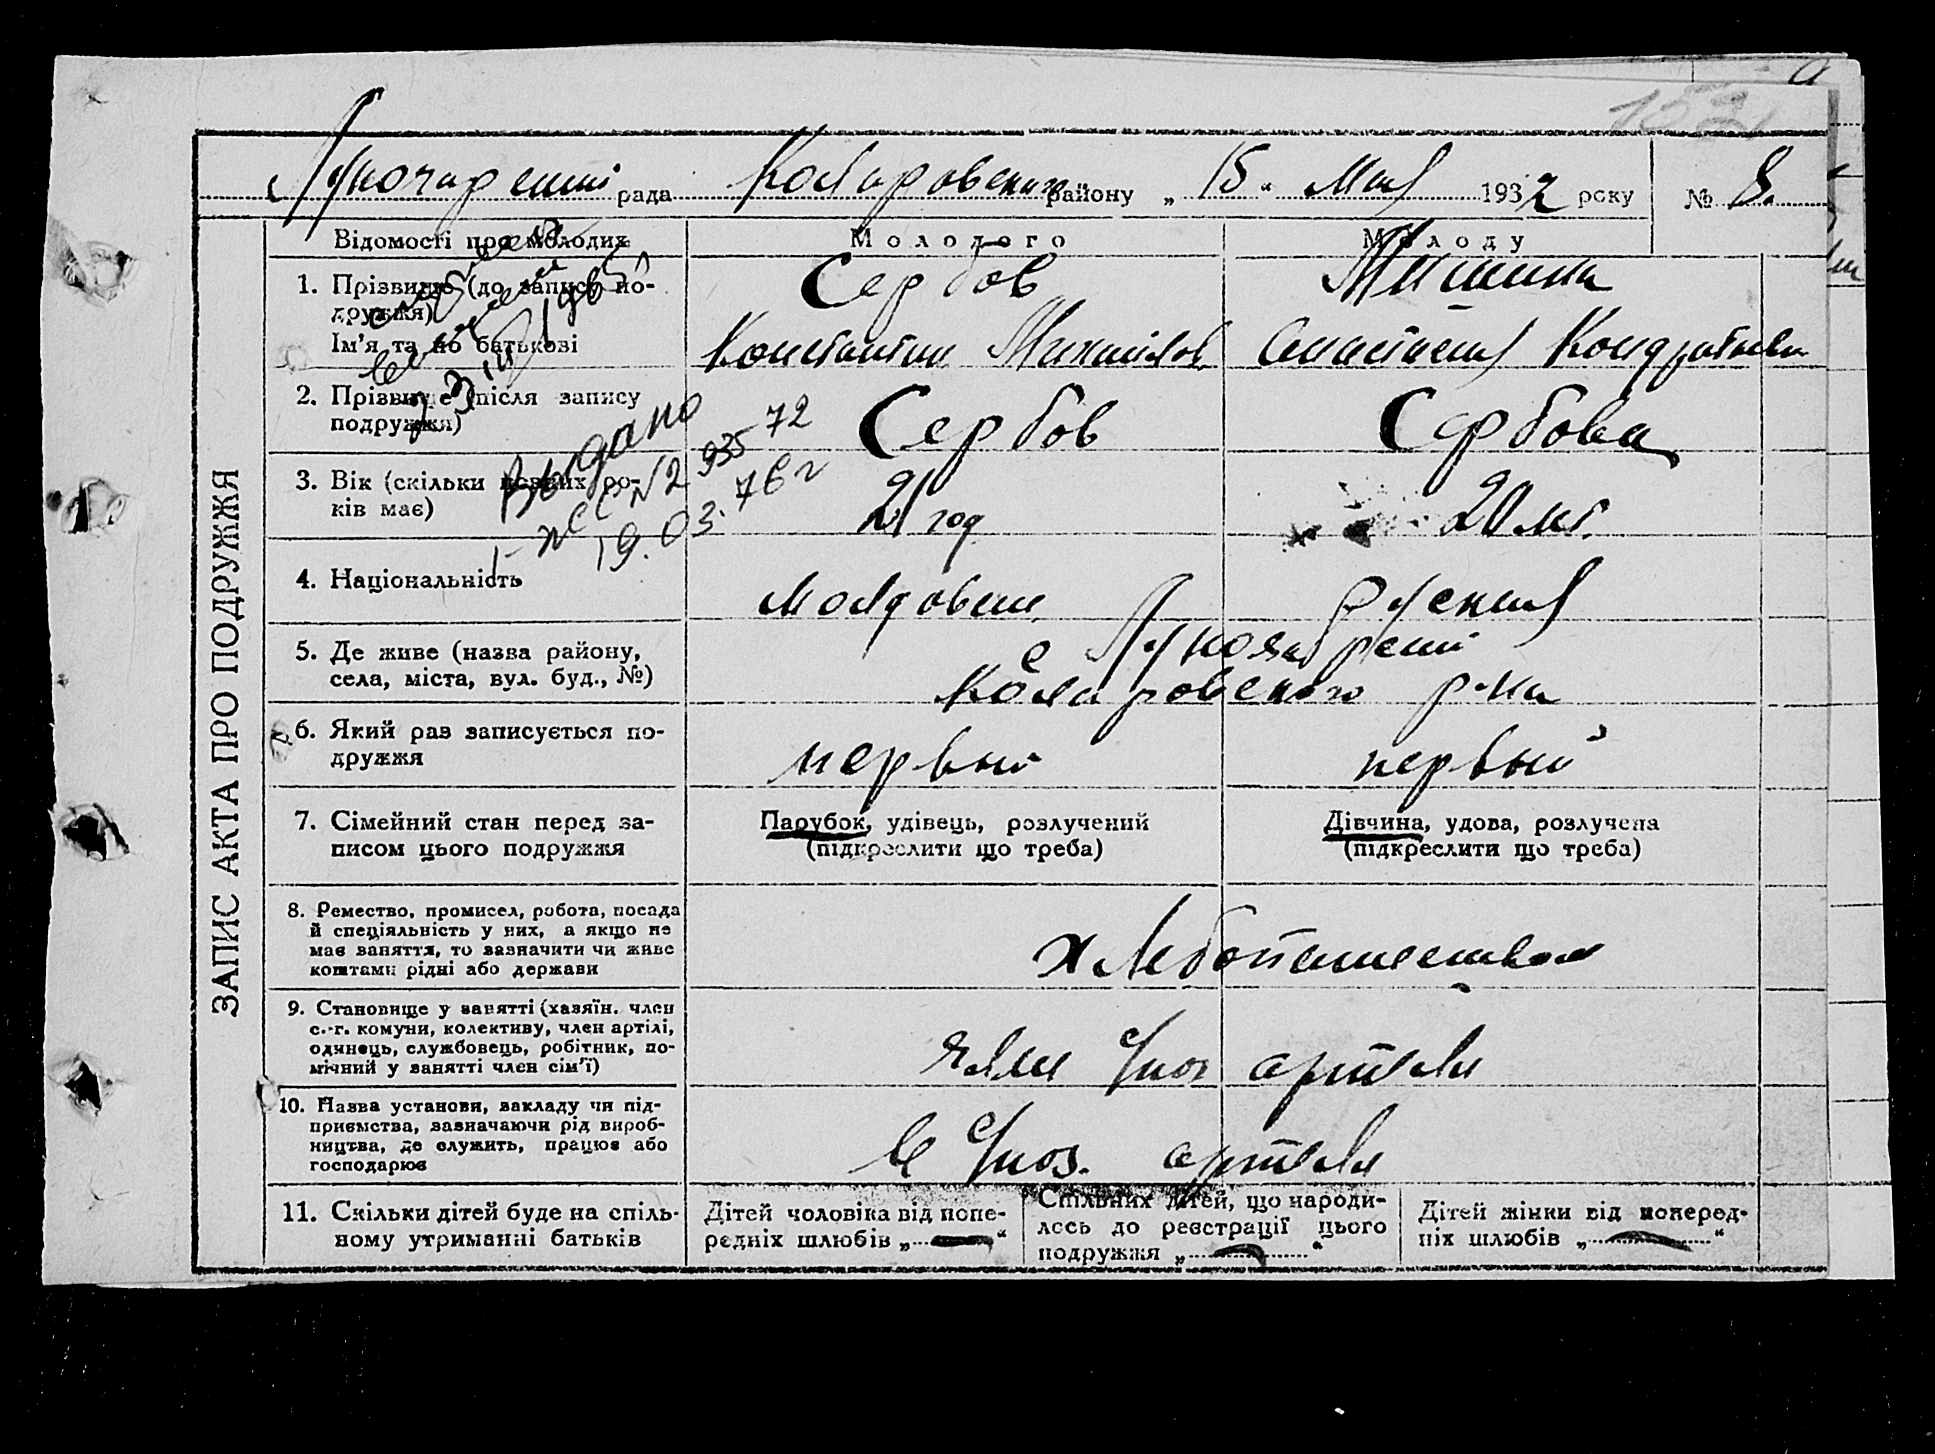 рада Коларовского району „ 15 " Мая 1932 року № 8.
Відомості про молодих Молодого Молоду
1. Прізвище (до запису по-
дружжя) Сербов Мишина
Ім'я та по батькові Константин Михайлов. Анастасия Кондратьевн
2. Прізвище (після запису
подружжя) Сербов Сербова
3. Вік (скільки повних ро-
ків має) 21 год 20 лет.
Выдано
І-ЖС № 2 935 72
19.03.76 г
4. Національність молдован. Руская
5. Де живе (назва району,
села, міста, вул. буд., №) с
Коларовского р-на
6. Який раз записується по-
дружжя первый первый
7. Сімейний стан перед за-
писом цього подружжя
Парубок, удівець, розлучений
(підкреслити що треба)
Дівчина, удова, розлучена
(підкреслити що треба)
8. Ремество, промисел, робота, посада
й спеціяльність у них, а якщо не
має заняття, то зазначити чи живе
коштами рідні або держави
хлебопашеством
9. Становище у занятті (хазяїн. член
с.-г. комуни, колективу, член артілі,
одинець, службовець, робітник, по-
мічний у занятті член сім'ї)
член с/хоз артели
10. Назва установи, закладу чи під-
приємства, зазначаючи рід вироб-
ництва, де служить, працює або
господарює
в с/хоз. артели
11. Скільки дітей буде на спіль-
ному утриманні батьків
Дітей чоловіка від попе-
редніх шлюбів „ — "
Спільних дітей, що народи-
лось до реєстрації цього
подружжя „ — "
Дітей жінки від поперед-
ніх шлюбів „ — "
ЗАПИС АКТА ПРО ПОДРУЖЖЯ